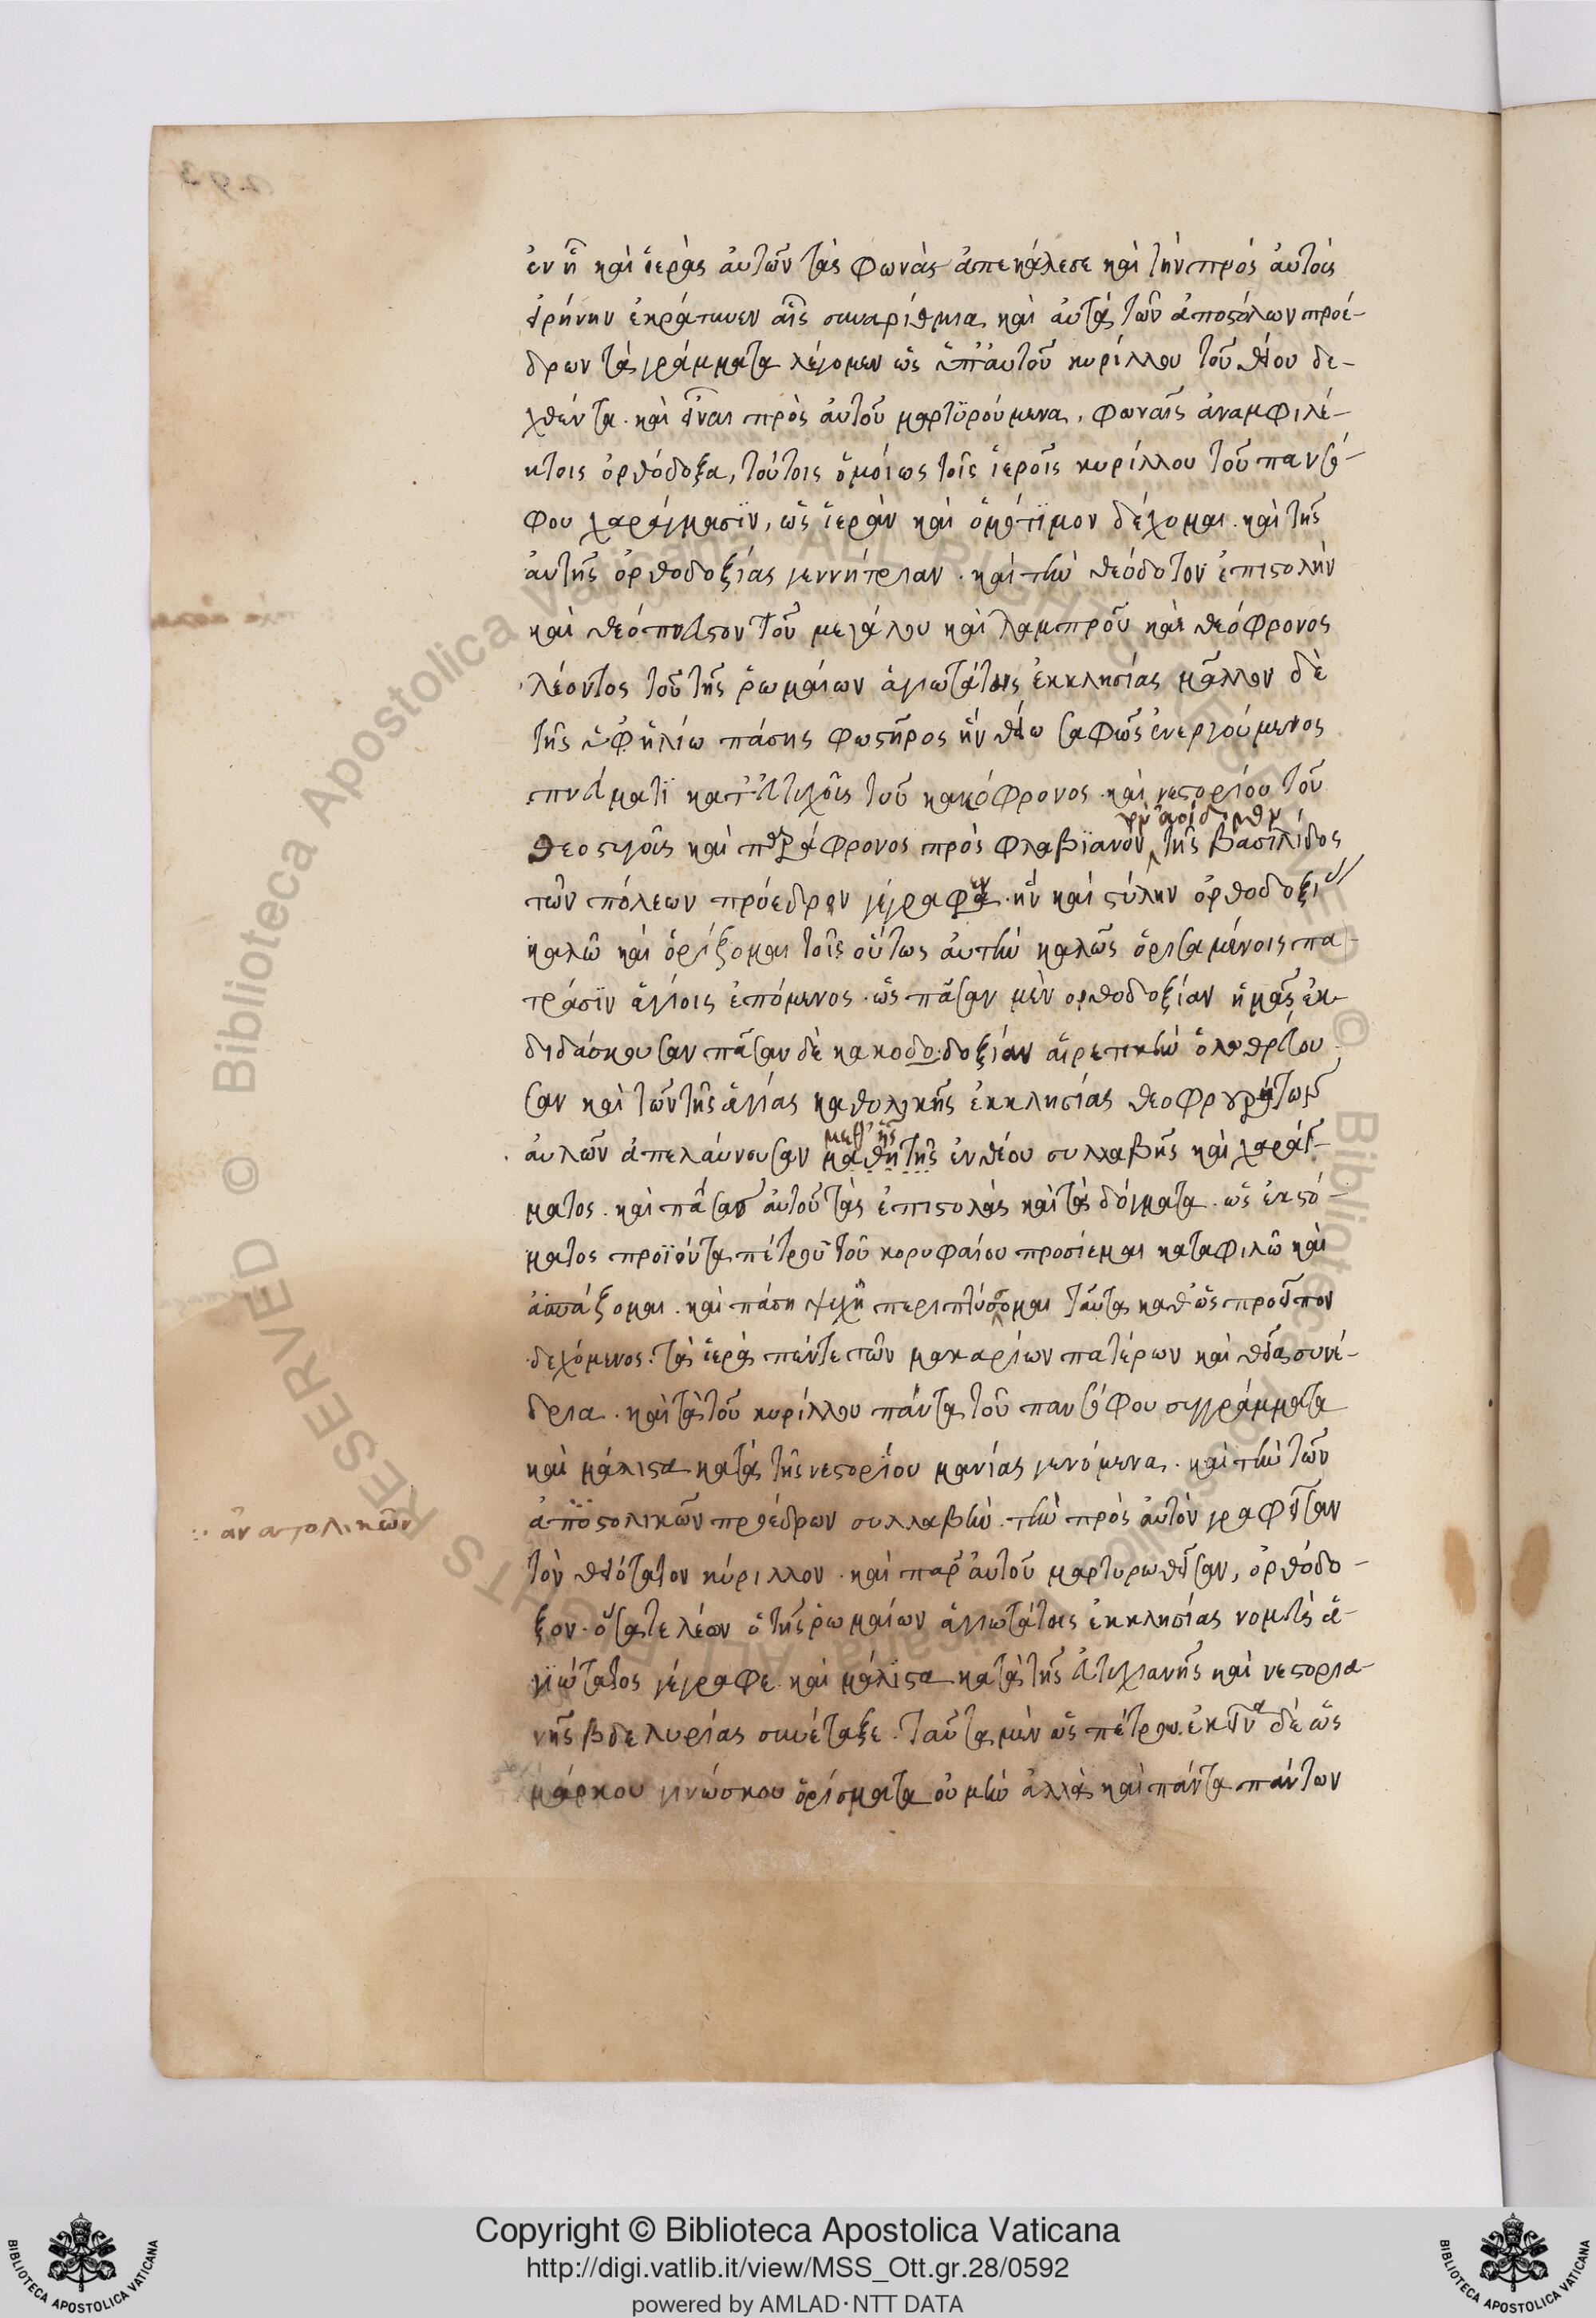 ἐν ᾗ καὶ ἱερὰς αὐτῶν τὰς φωνὰς ἀπεκάλεσε καὶ τὴν πρὸς αὐτοὺς
εἰρήνην ἐκράτυνεν αἷς συναρίθμια καὶ αὐτὰ τῶν ἀποστόλων προέ-
δρων τὰ γράμματα λέγομεν ὡς ὑπ' αὐτοῦ κυρίλλου τοῦ θείου δε-
χθέντα. καὶ εἶναι πρὸς αὐτοῦ μαρτϋρούμενα, φωναῖς ἀναμφιλέ-
κτοις ὀρθόδοξα, τούτοις ὁμοίως τοῖς ἱεροῖς κυρίλλου τοῦ πανσό-
φου χαράγμασϊν, ὡς ἱερὰν καὶ ὁμότϊμον δέχομαι. καὶ τῆς
αὐτῆς ὀρθοδοξίας γεννήτριαν. καὶ τὴν θεόδοτον ἐπιστολὴν
καὶ θεόπνευστον τοῦ μεγάλου καὶ λαμπροῦ καὶ θεόφρονος
λέοντος τοῦ τῆς ῥωμαίων ἁγιωτάτης ἐκκλησίας μᾶλλον δὲ
τῆς ὑφ' ἡλίω πάσης φωστῆρος ἣν θείω σαφῶς ἐνεργούμενος
πνεύματϊ κατ' εὐτυχοῦς τοῦ κακόφρονος καὶ νεστορίου τοῦ
θεοστυγοῦς καὶ παράφρονος πρὸς φλαβϊανὸν τῆς βασιλίδος
τῶν πόλεων πρόεδρον γέγραφεν. ἣν καὶ στήλην ὀρθοδοξίας
καλῶ καὶ ὁρίζομαι τοῖς οὕτως αὐτὴν καλῶς ὁρισαμένοις πα-
τράσϊν ἁγίοις ἑπόμενος. ὡς πᾶσαν μὲν ὀρθοδοξίαν ἡμᾶς ἐκ-
διδάσκουσαν πᾶσαν δὲ κακοδοδοξίαν αἱρετικὴν ὀλοθρεύου-
σαν καὶ τῶν τῆς ἁγίας καθολικῆς ἐκκλησίας θεοφρουρήτων
αὐλῶν ἀπελαύνουσαν μεθ' ἧς καθη τῆς ἐνθέου συλλαβῆς καὶ χαράγ-
ματος. καὶ πάσας αὐτοῦ τὰς ἐπιστολὰς καὶ τὰ δόγματα. ὡς ἐκ στό-
ματος προϊόντα πέτρου τοῦ κορυφαίου προσίεμαι καταφιλῶ καὶ
ἀσπάζομαι. καὶ πάση ψυχῆ περιπτύσσομαι ταῦτα καθὼς προεῖπον
δεχόμενος. τὰ ἱερὰ πέντε τῶν μακαρίων πατέρων καὶ θεῖα συνέ-
δρια. καὶ τὰ τοῦ κυρίλλου πάντα τοῦ πανσόφου συγγράμματα
καὶ μάλιστα κατὰ τῆς νεστορίου μανίας γενόμενα. καὶ τὴν τῶν
ἀποστολικῶν προέδρων συλλαβὴν. τὴν πρὸς αὐτὸν γραφεῖσαν
:· ἀνατολικῶν
τὸν θειότατον κύριλλον. καὶ παρ' αὐτοῦ μαρτυρωθεῖσαν, ὀρθόδο-
ξον. ὅσα τε λέων ὁ τῆς ῥωμαίων ἁγιωτάτης ἐκκλησίας νομεὺς ἁ-
γϊώτατος γέγραφε καὶ μάλϊστα κατὰ τῆς εὐτυχιανῆς καὶ νεστορια-
νῆς βδελυρίας συνέταξε. ταῦτα μὲν ὡς πέτρου. ἐκεῖνα δὲ ὡς
μάρκου γινώσκου ὁρίσματα οὐ μὴν ἀλλὰ καὶ πάντα πάντων
Copyright © Biblioteca Apostolica Vaticana
http://digi.vatlib.it/view/MSS_Ott.gr.28/0592
powered by AMLAD·NTT DATA